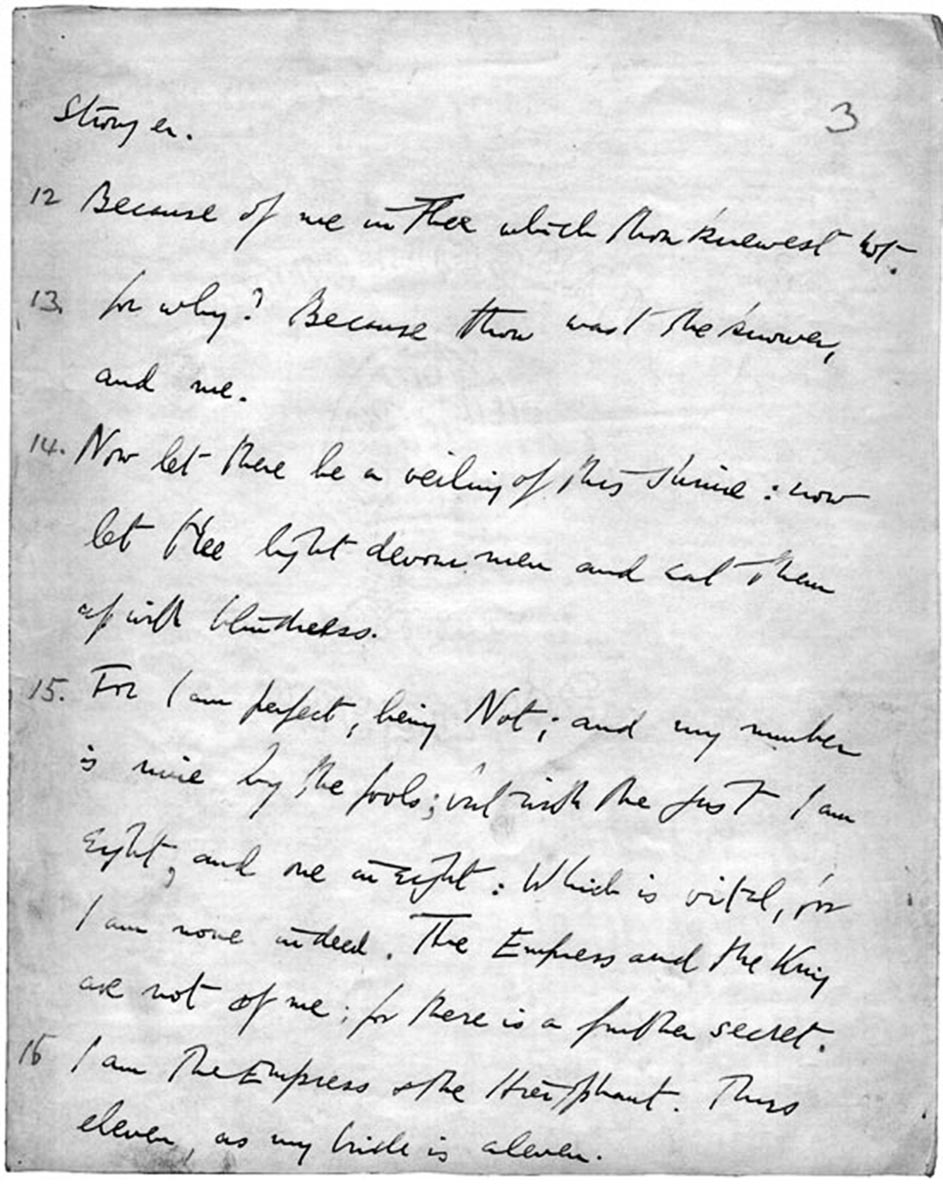 3
stronger.
12 Because of me in Thee which thou knewest not.
13. for why? Because thou wast the knower,
and me.
14. Now let there be a veiling of this shrine: now
let thee light devour men and eat them
up with blindness.
15. For I am perfect, being Not; and my number
is nine by the fools; but with the just I am
eight, and one in eight: Which is vital, for
I am none indeed. The Empress and the King
are not of me; for there is a further secret.
16 I am the Empress & the Hierophant. Thus
eleven, as my bride is eleven.